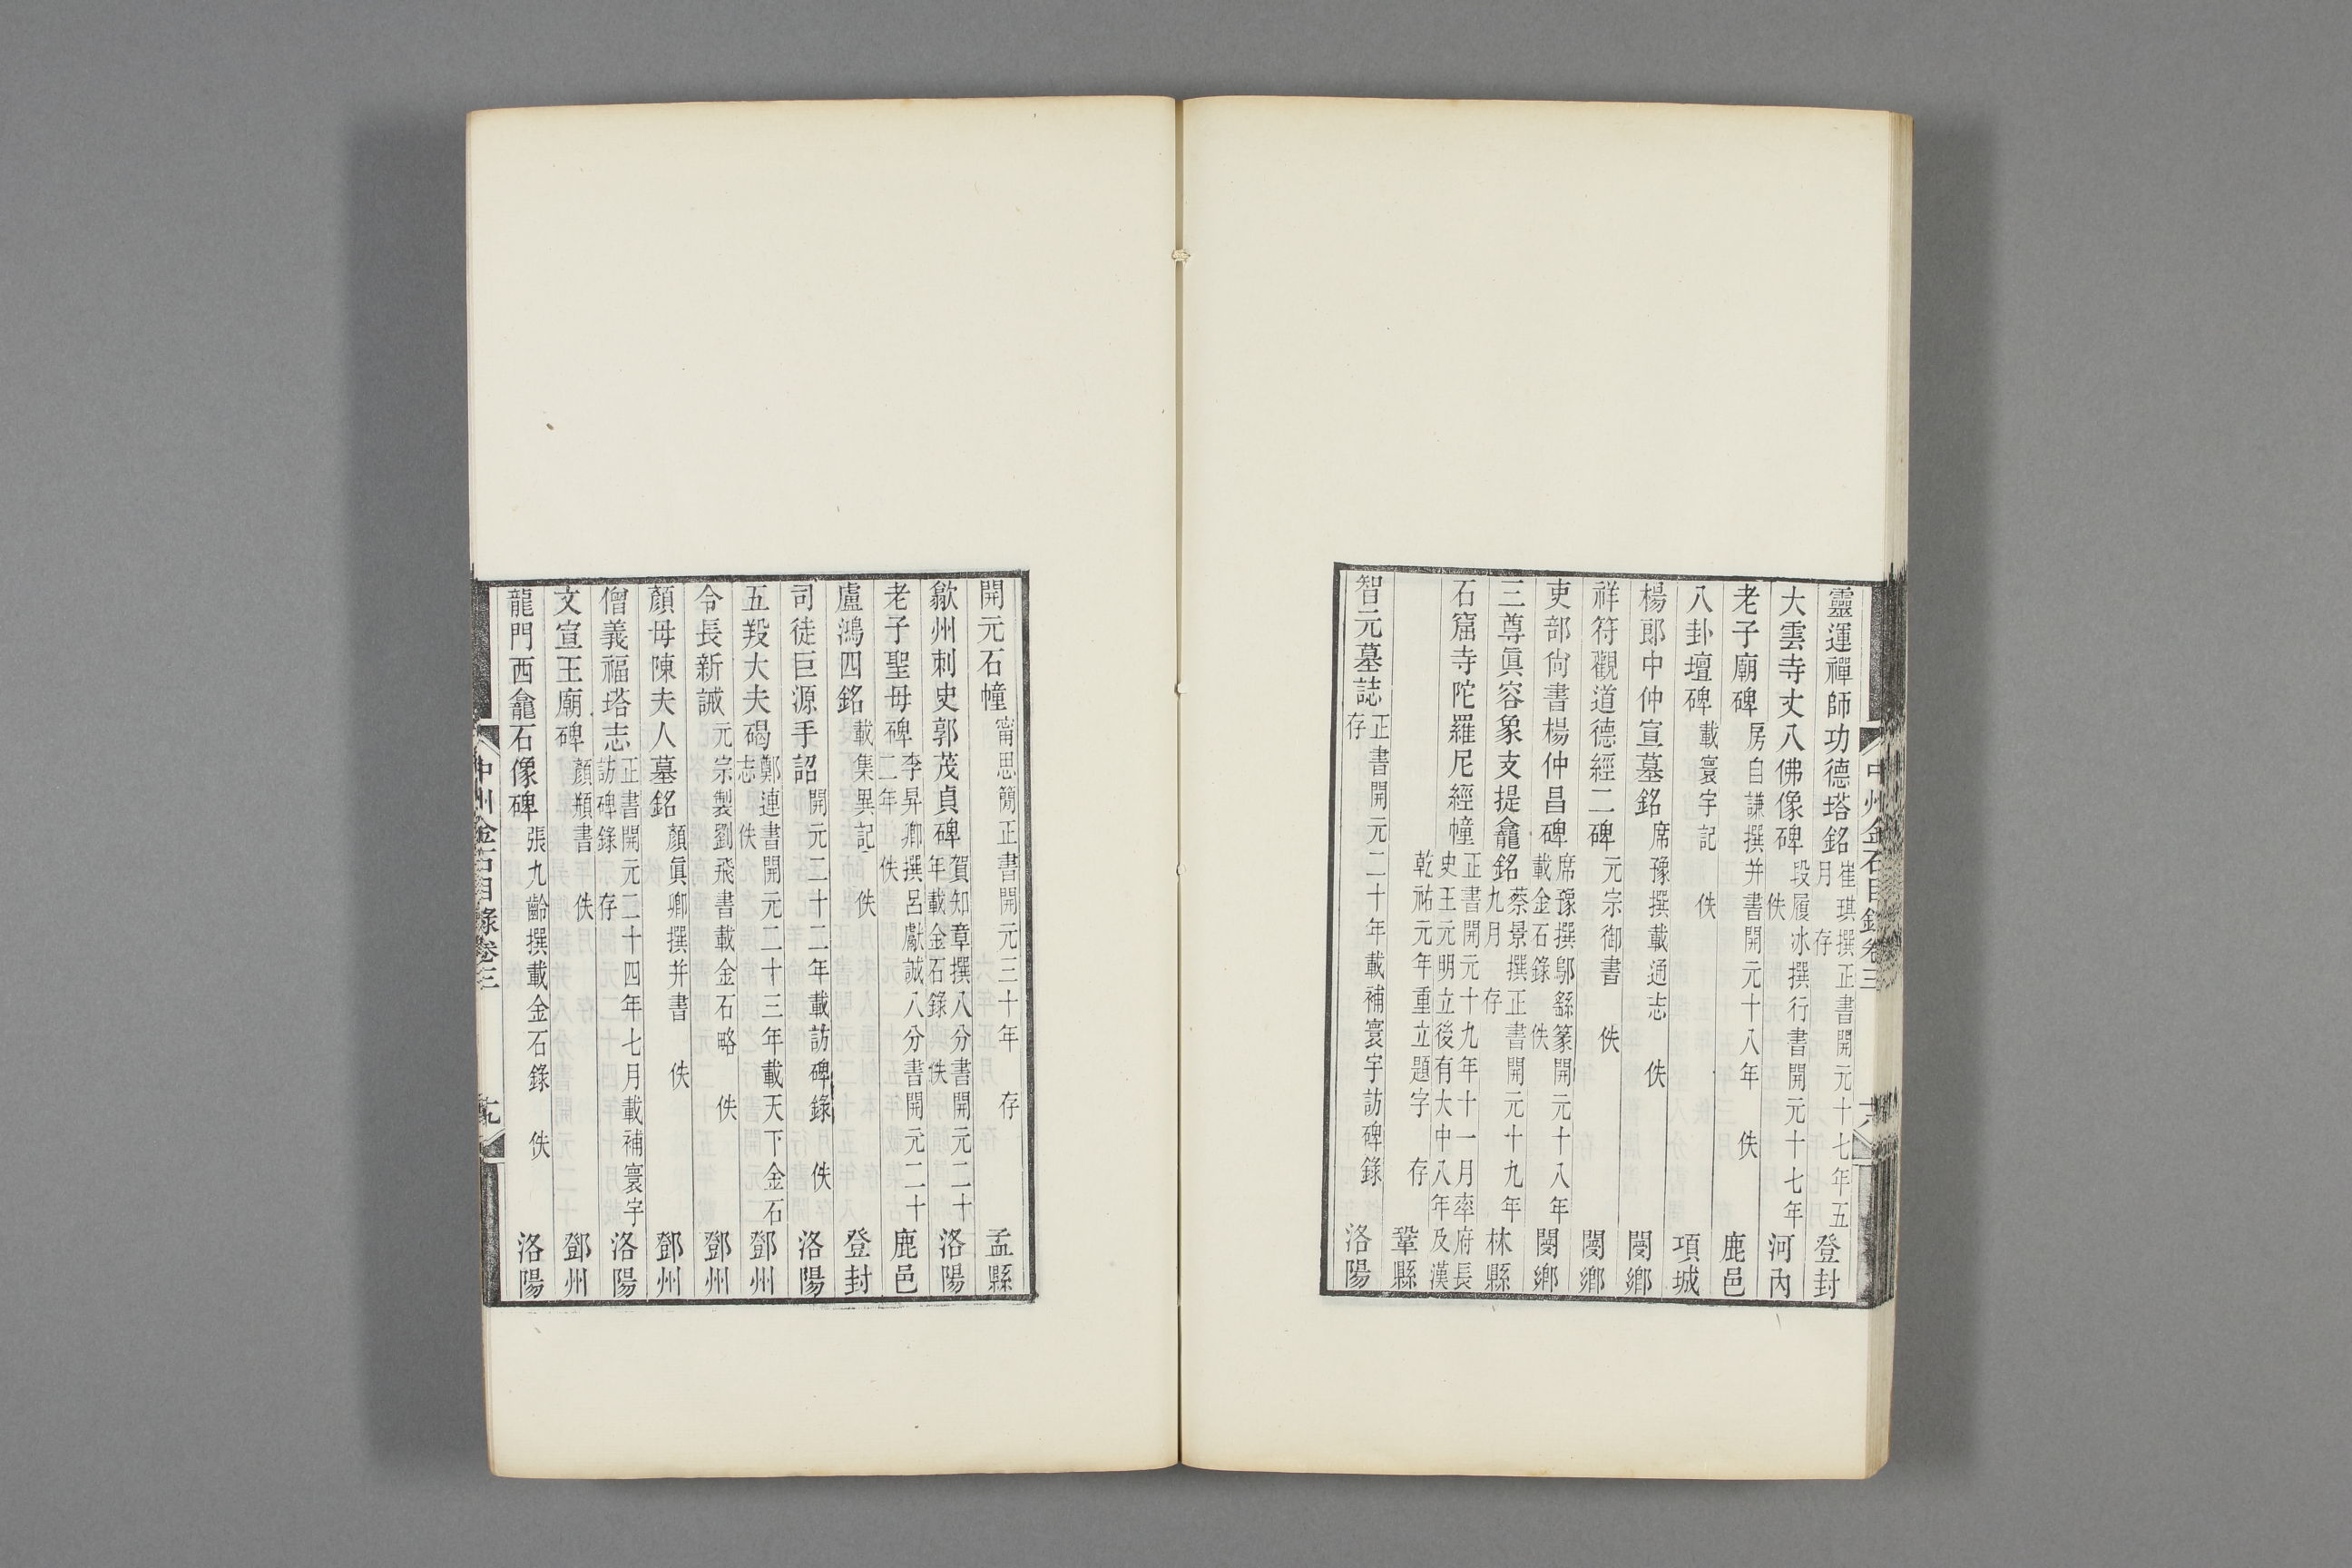 靈運禪師功德塔銘 崔琪撰正書開元十七年五月 存 登封
大雲寺丈八佛像碑 段履冰撰行書開元十七年 佚 河內
老子廟碑 房自謙撰并書開元十八年 佚 鹿邑
八卦壇碑 載寰宇記 佚 項城
楊郎中仲宣墓銘 席豫撰載通志 佚 閿鄉
祥符觀道德經二碑 元宗御書 佚 閿鄉
吏部尙書楊仲昌碑 席豫撰鄔繇篆開元十八年載金石錄 佚 閿鄉
三尊眞容象支提龕銘 蔡景撰正書開元十九年九月 存 林縣
石窟寺陀羅尼經幢 正書開元十九年十一月率府長史王元明立後有大中八年及漢
乾祐元年重立題字 存 鞏縣
智元墓誌 正書開元二十年載補寰宇訪碑錄 存 洛陽
中州金石目錄卷三 十八
開元石幢 甯思簡正書開元三十年 存 孟縣
歙州刺史郭茂貞碑 賀知章撰八分書開元二十年載金石錄 佚 洛陽
老子聖母碑 李昇卿撰呂獻誠八分書開元二十二年 佚 鹿邑
盧鴻四銘 載集異記 佚 登封
司徒巨源手詔 開元二十二年載訪碑錄 佚 洛陽
五羖大夫碣 鄭連書開元二十三年載天下金石志 佚 鄧州
令長新誡 元宗製劉飛書載金石略 佚 鄧州
顏母陳夫人墓銘 顏眞卿撰并書 佚 鄧州
僧義福塔志 正書開元二十四年七月載補寰宇訪碑錄 存 洛陽
文宣王廟碑 顏頵書 佚 鄧州
龍門西龕石像碑 張九齡撰載金石錄 佚 洛陽
中州金石目錄卷三 十九